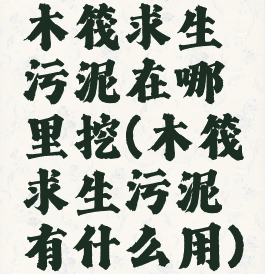 木筏求生
污泥在哪
里挖(木筏
求生污泥
有什么用)